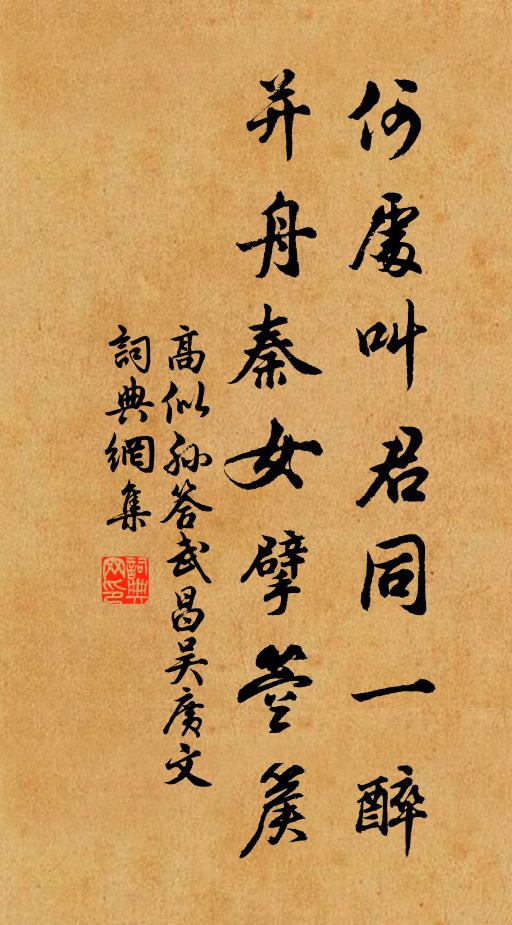 何處叫君同一醉
并舟秦女擘箜篌
高似孫答武昌吳廣文
詞典網集
詞典網印